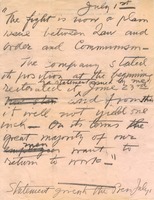 July 1st
"The fight is now a plain
issue between Law and
order and Communism—
The Company stated
its position at the beginning
Statement
restated it June 23rd
and from this
it will not yield one
inch — On its terms the
great majority of our
men want to
return to work—"
Statement given the Press July 1